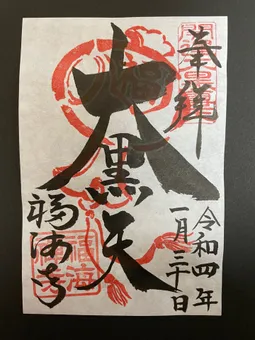 奉拝
大黒天
令和四年
一月三十日
福海寺